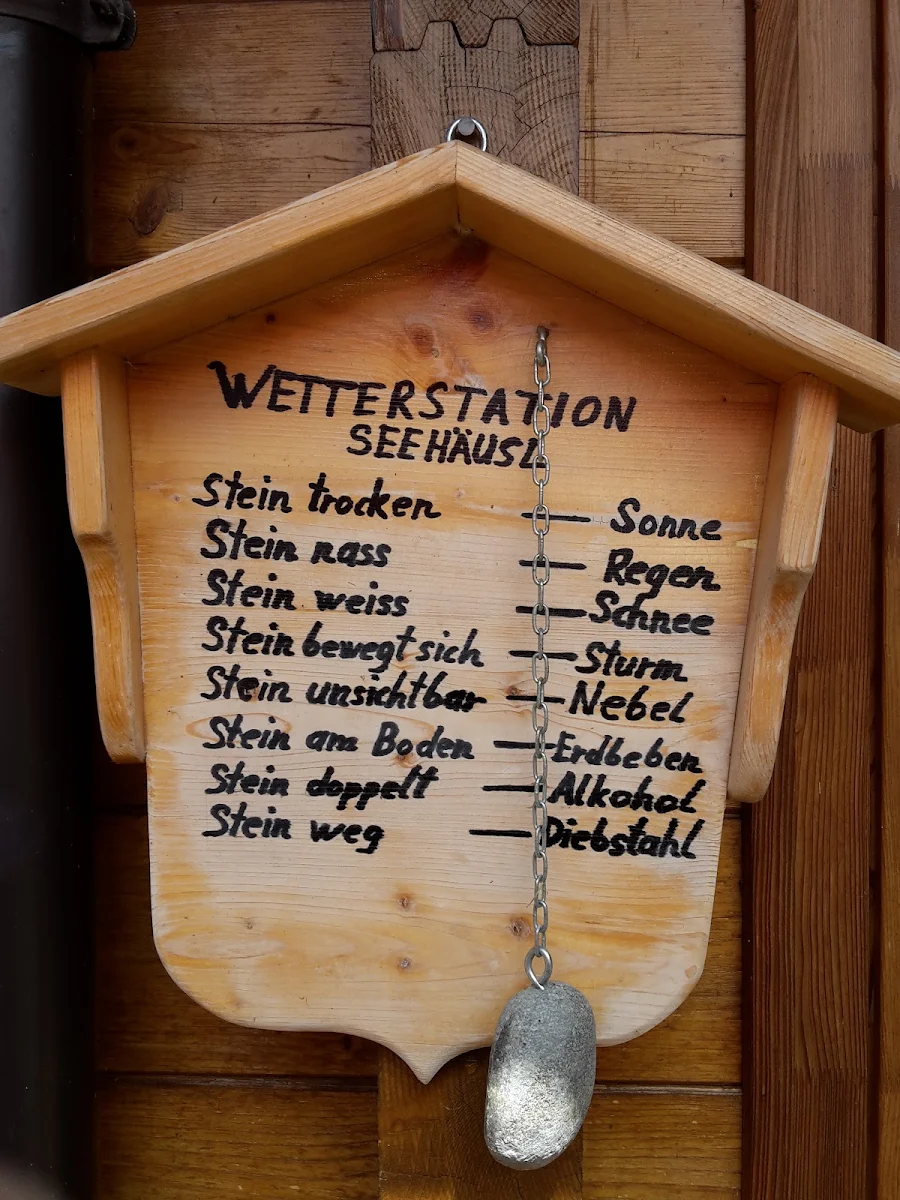 WETTERSTATION
SEEHÄUSL
Stein trocken — Sonne
Stein nass — Regen
Stein weiss — Schnee
Stein bewegt sich — Sturm
Stein unsichtbar — Nebel
Stein am Boden — Erdbeben
Stein doppelt — Alkohol
Stein weg — Diebstahl